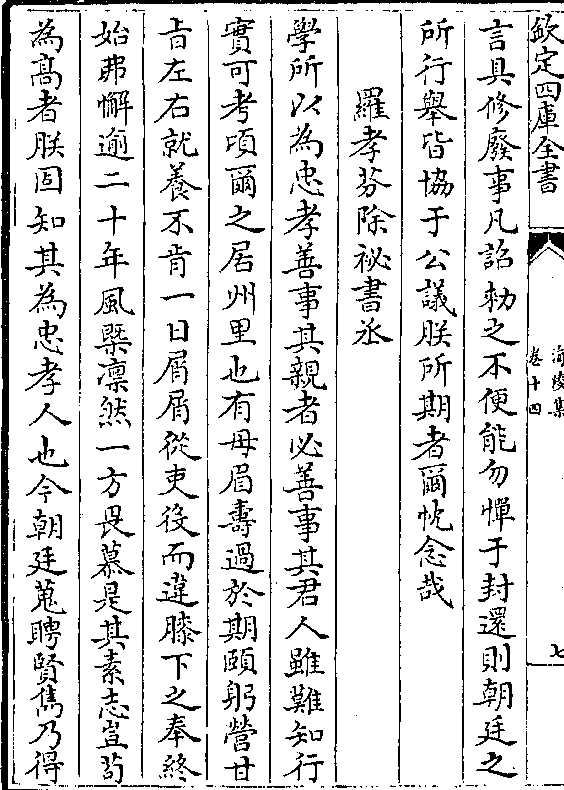 欽定四庫全書
涪陵集
卷十四
七
言具修廢事凡詔勅之不便能勿憚于封還則朝廷之
所行舉皆協于公議朕所期者爾忱念哉
羅孝芬除祕書丞
學所以為忠孝善事其親者必善事其君人雖難知行
實可考頃爾之居州里也有母眉壽過於期頤躬營甘
旨左右就養不肯一日屑屑從吏役而違膝下之奉終
始弗懈逾二十年風槩凛然一方畏慕是其素志豈苟
為高者朕固知其為忠孝人也今朝廷蒐聘賢雋乃得